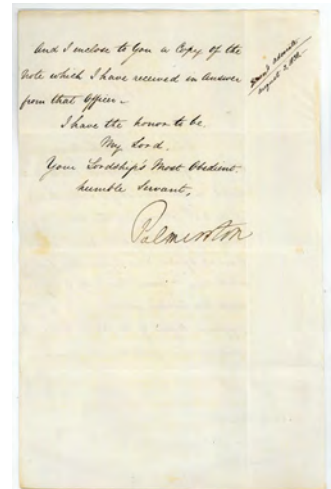 And I enclose to You a Copy of the
Note which I have received in Answer
from that Officer –
I have the honor to be
My Lord,
Your Lordship's Most Obedient
humble Servant,
Palmerston
August 2. 18